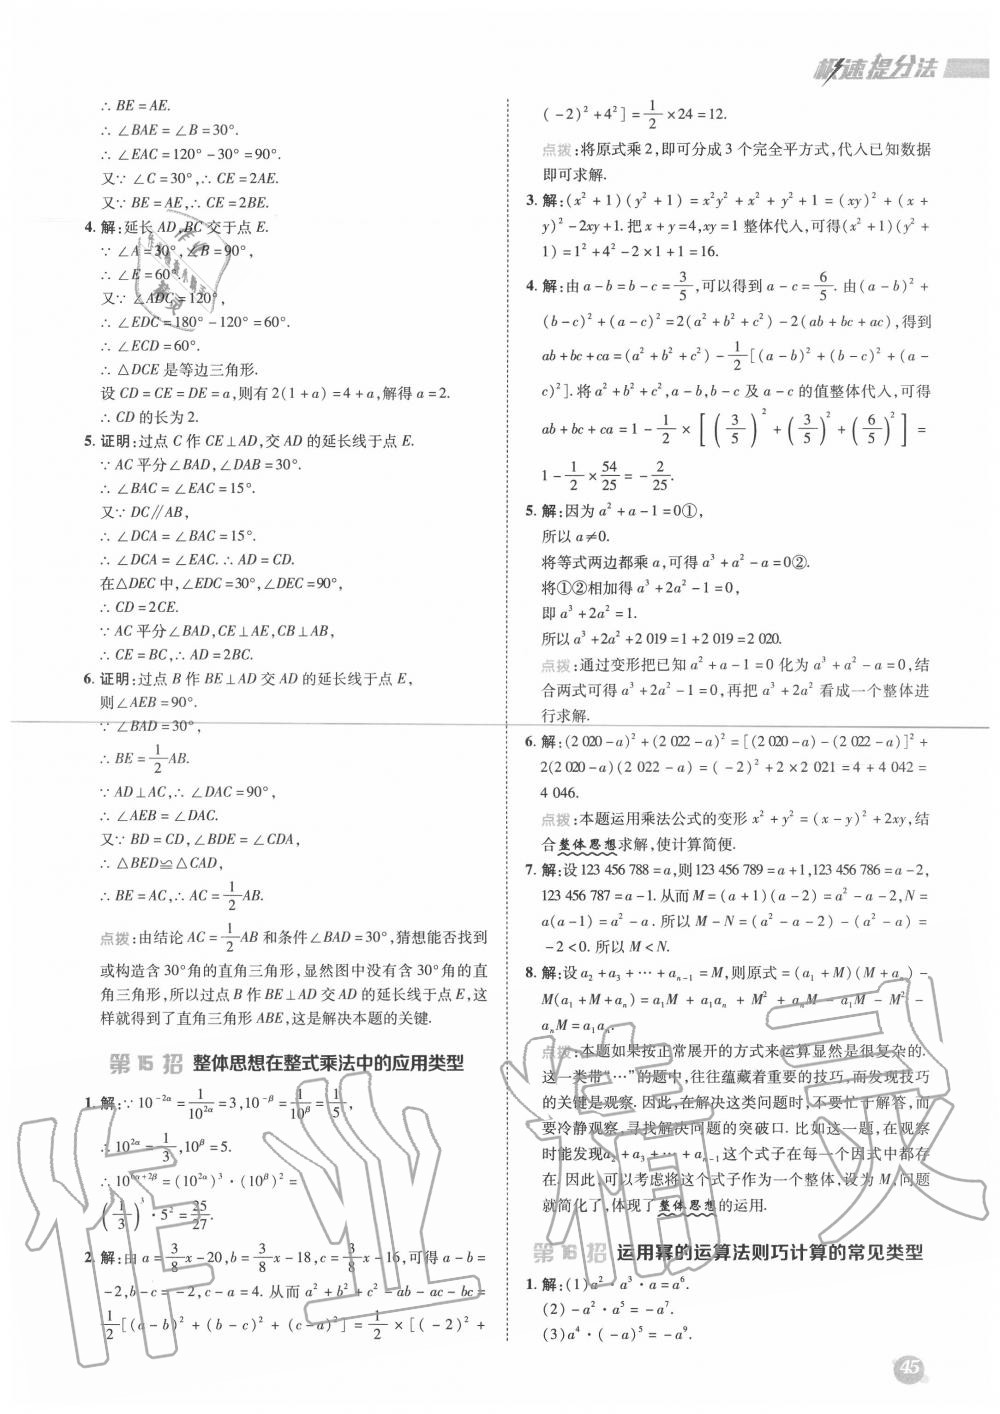 极速提分法
∴ BE=AE.
∴ ∠BAE=∠B=30°.
∴ ∠EAC=120°-30°=90°.
又∵ ∠C=30°,∴ CE=2AE.
又∵ BE=AE,∴ CE=2BE.
4. 解:延长 AD,BC 交于点 E.
∵ ∠A=30°,∠B=90°,
∴ ∠E=60°.
又∵ ∠ADC=120°,
∴ ∠EDC=180°-120°=60°.
∴ ∠ECD=60°.
∴ △DCE 是等边三角形.
设 CD=CE=DE=a,则有 2(1+a)=4+a,解得 a=2.
∴ CD 的长为 2.
5. 证明:过点 C 作 CE⊥AD,交 AD 的延长线于点 E.
∵ AC 平分∠BAD,∠DAB=30°.
∴ ∠BAC=∠EAC=15°.
又∵ DC∥AB,
∴ ∠DCA=∠BAC=15°.
∴ ∠DCA=∠EAC.∴ AD=CD.
在△DEC 中,∠EDC=30°,∠DEC=90°,
∴ CD=2CE.
∵ AC 平分∠BAD,CE⊥AE,CB⊥AB,
∴ CE=BC,∴ AD=2BC.
6. 证明:过点 B 作 BE⊥AD 交 AD 的延长线于点 E,
则∠AEB=90°.
∵ ∠BAD=30°,
∴ BE=1/2AB.
∵ AD⊥AC,∴ ∠DAC=90°,
∴ ∠AEB=∠DAC.
又∵ BD=CD,∠BDE=∠CDA,
∴ △BED≌△CAD,
∴ BE=AC,∴ AC=1/2AB.
点拨:由结论 AC=1/2AB 和条件∠BAD=30°,猜想能否找到
或构造含 30°角的直角三角形,显然图中没有含 30°角的直
角三角形,所以过点 B 作 BE⊥AD 交 AD 的延长线于点 E,这
样就得到了直角三角形 ABE,这是解决本题的关键.
第 15 招 整体思想在整式乘法中的应用类型
1. 解:∵ 10^(-2α)=1/10^(2α)=3,10^(-β)=1/10^β=1/5,
∴ 10^(2α)=1/3,10^β=5.
∴ 10^(6α+2β)=(10^(2α))³·(10^β)²=
(1/3)³·5²=25/27.
2. 解:由 a=3/8x-20,b=3/8x-18,c=3/8x-16,可得 a-b=
-2,b-c=-2,c-a=4. 从而 a²+b²+c²-ab-ac-bc=
1/2[(a-b)²+(b-c)²+(c-a)²]=1/2×[(-2)²+
(-2)²+4²]=1/2×24=12.
点拨:将原式乘 2,即可分成 3 个完全平方式,代入已知数据
即可求解.
3. 解:(x²+1)(y²+1)=x²y²+x²+y²+1=(xy)²+(x+
y)²-2xy+1.把 x+y=4,xy=1 整体代入,可得(x²+1)(y²+
1)=1²+4²-2×1+1=16.
4. 解:由 a-b=b-c=3/5,可以得到 a-c=6/5.由(a-b)²+
(b-c)²+(a-c)²=2(a²+b²+c²)-2(ab+bc+ac),得到
ab+bc+ca=(a²+b²+c²)-1/2[(a-b)²+(b-c)²+(a-
c)²].将 a²+b²+c²,a-b,b-c 及 a-c 的值整体代入,可得
ab+bc+ca=1-1/2×[(3/5)²+(3/5)²+(6/5)²]=
1-1/2×54/25=-2/25.
5. 解:因为 a²+a-1=0①,
所以 a≠0.
将等式两边都乘 a,可得 a³+a²-a=0②.
将①②相加得 a³+2a²-1=0,
即 a³+2a²=1.
所以 a³+2a²+2 019=1+2 019=2 020.
点拨:通过变形把已知 a²+a-1=0 化为 a³+a²-a=0,结
合两式可得 a³+2a²-1=0,再把 a³+2a² 看成一个整体进
行求解.
6. 解:(2 020-a)²+(2 022-a)²=[(2 020-a)-(2 022-a)]²+
2(2 020-a)(2 022-a)=(-2)²+2×2 021=4+4 042=
4 046.
点拨:本题运用乘法公式的变形 x²+y²=(x-y)²+2xy,结
合整体思想求解,使计算简便.
7. 解:设 123 456 788=a,则 123 456 789=a+1,123 456 786=a-2,
123 456 787=a-1.从而 M=(a+1)(a-2)=a²-a-2,N=
a(a-1)=a²-a.所以 M-N=(a²-a-2)-(a²-a)=
-2<0.所以 M<N.
8. 解:设 a₂+a₃+…+aₙ₋₁=M,则原式=(a₁+M)(M+aₙ)-
M(a₁+M+aₙ)=a₁M+a₁aₙ+M²+aₙM-a₁M-M²-
aₙM=a₁aₙ.
点拨:本题如果按正常展开的方式来运算显然是很复杂的.
这一类带“…”的题中,往往蕴藏着重要的技巧,而发现技巧
的关键是观察.因此,在解决这类问题时,不要忙于解答,而
要冷静观察,寻找解决问题的突破口.比如这一题,在观察
时能发现a₂+a₃+…+aₙ₋₁这个式子在每一个因式中都存
在.因此,可以考虑将这个式子作为一个整体,设为 M,问题
就简化了,体现了整体思想的运用.
第 16 招 运用幂的运算法则巧计算的常见类型
1. 解:(1)a²·a³·a=a⁶.
(2)-a²·a⁵=-a⁷.
(3)a⁴·(-a)⁵=-a⁹.
45
作业精灵